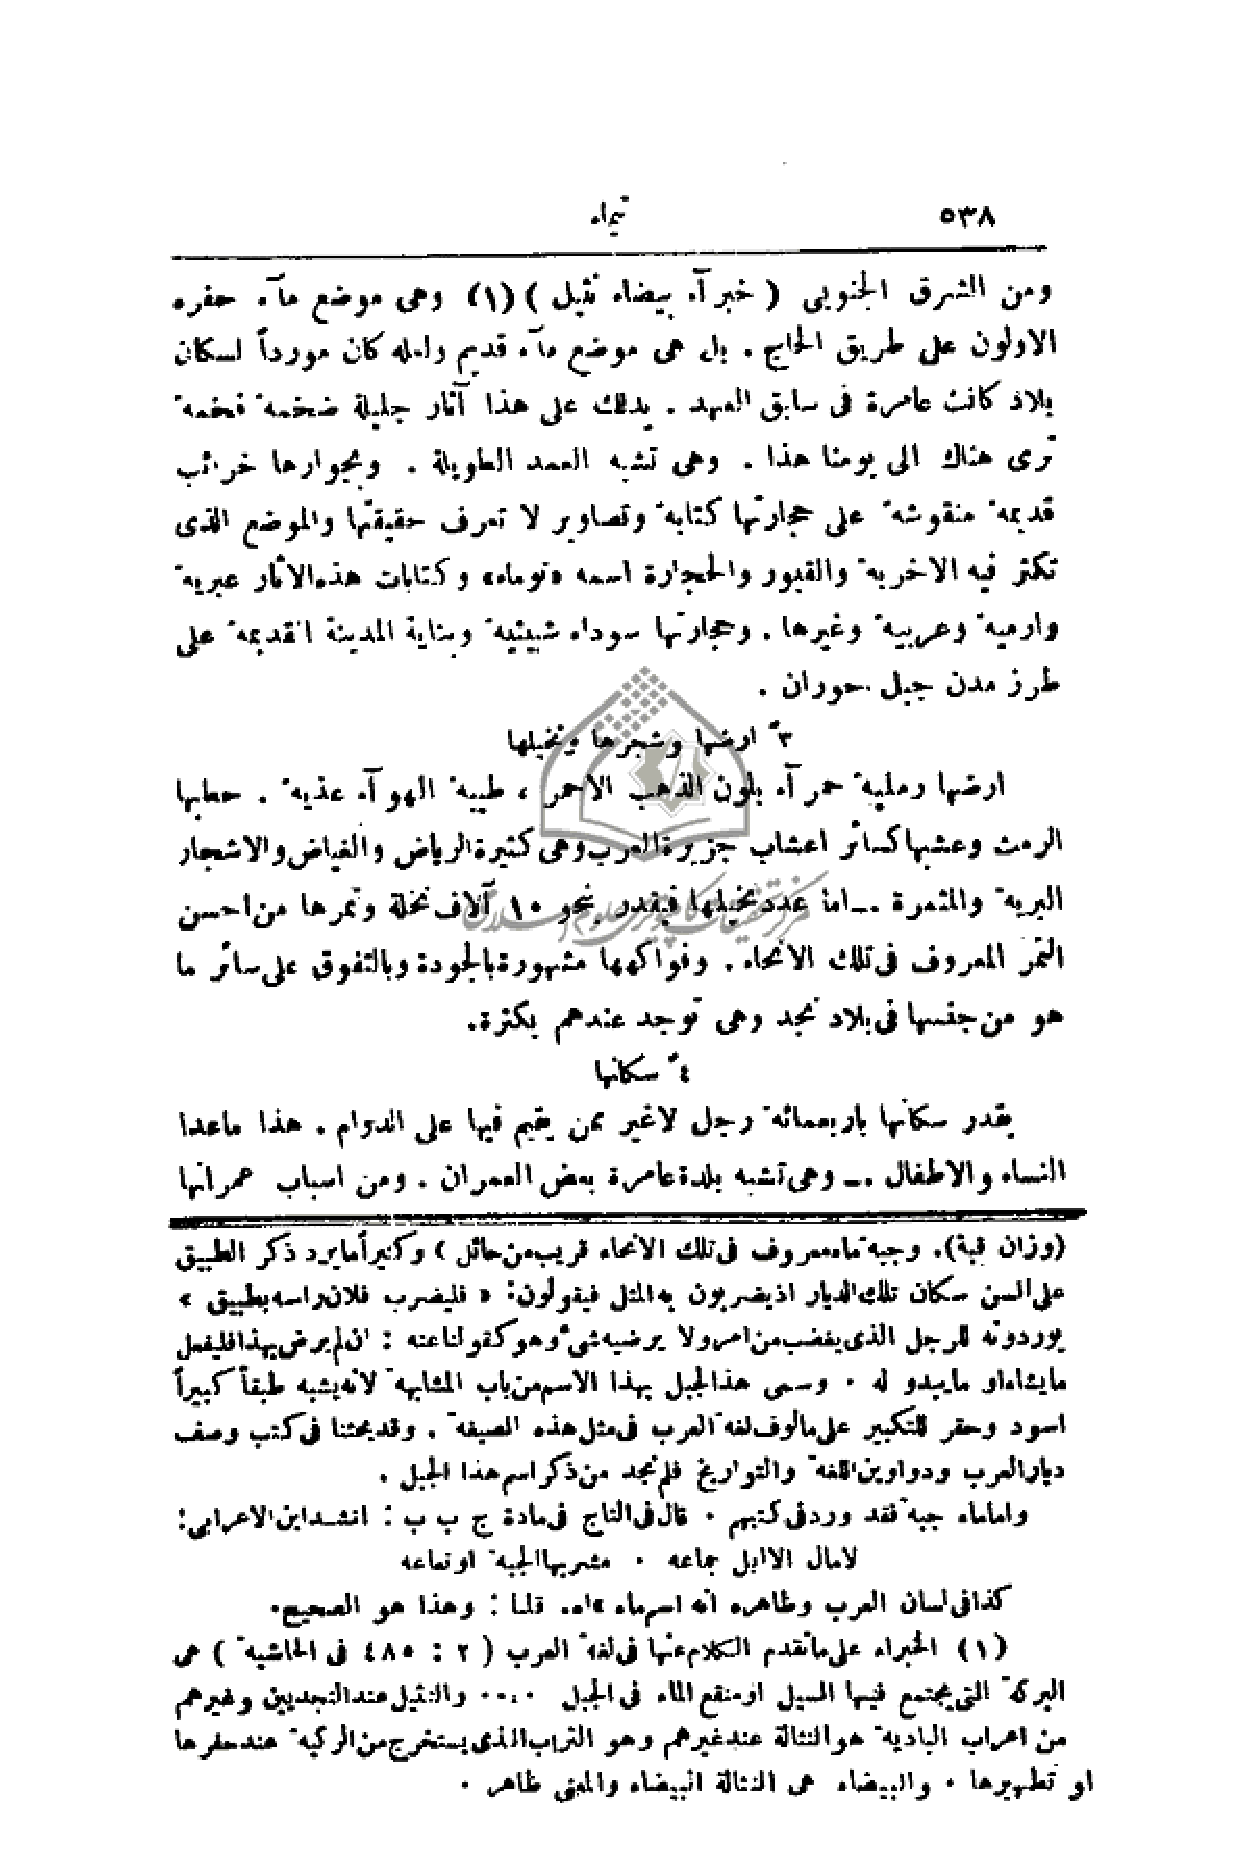 ٥٣٨ تيماء
ومن الشرق الجنوبى ( خبرآء بيضاء نثيل ) (١) وهى موضع مآء حفره
الاولون على طريق الحاج . بل هى موضع مآء قديم ولعله كان مورداً لسكان
بلاد كانت عامرة فى سابق العهد . يدلك على هذا آثار جليلة ضخمة فخمة
ترى هناك الى يومنا هذا . وهى تشبه العمد الطويلة . وبجوارها خرائب
قديمة منقوشة على حجارتها كتابة وتصاوير لا تعرف حقيقتها والموضع الذى
تكثر فيه الاخربة والقبور والحجارة اسمه «توماء» وكتابات هذه الاثار عبرية
وارمية وعربية وغيرها . وحجارتها سوداء شبيئية وبناية المدينة القديمة على
طرز مدن جبل حوران .
٣ً ارضها وشجرها ونخيلها
ارضها رملية حمرآء بلون الذهب الاحمر ، طيبة الهوآء عذية . حطبها
الرمث وعشبها كسائر اعشاب جزيرة العرب وهى كثيرة الرياض والغياض والاشجار
البرية والمثمرة .ــ اما عدد نخيلها فيقدر بنحو ١٠ آلاف نخلة وتمرها من احسن
التمر المعروف فى تلك الانحاء . وفواكهها مشهورة بالجودة وبالتفوق على سائر ما
هو من جنسها فى بلاد نجد وهى توجد عندهم بكثرة.
٤ً سكانها
يقدر سكانها باربعمائة رجل لاغير ممن يقيم فيها على الدوام . هذا ماعدا
النساء والاطفال .ــ وهى تشبه بلدة عامرة بعض العمران . ومن اسباب عمرانها
(وزان قبة). وجبة ماء معروف فى تلك الانحاء قريب من حائل ) وكثيراً ما يرد ذكر الطبيق
على السن سكان تلك الديار اذ يضربون به المثل فيقولون: « فليضرب فلان راسه بطبيق »
يوردونه للرجل الذى يغضب من امر ولا يرضيه شئ وهو كقولنا عنه : ان لم يرض بهذا فليفعل
ما يشاء او ما يبدو له . وسمى هذا الجبل بهذا الاسم من باب المشابهة لانه يشبه طبقاً كبيراً
اسود وحقر للتكبير على مالوف لغة العرب فى مثل هذه الصيغة . وقد بحثنا فى كتب وصف
ديار العرب ودواوين اللغة والتواريخ فلم نجد من ذكر اسم هذا الجبل .
واما ماء جبة فقد ورد فى كتبهم . قال فى التاج فى مادة ج ب ب : انشد ابن الاعرابى:
لا مال الا ابل جماعه . مشربها الجبة او نعاعه
كذا فى لسان العرب وظاهره انه اسم ماء »اه. قلنا : وهذا هو الصحيح.
(١) الخبراء على ما تقدم الكلام عنها فى لغة العرب ( ٢ : ٤٨٥ فى الحاشية ) هى
البركة التى يجتمع فيها السيل او منقع الماء فى الجبل .... والنثيل عند النجديين وغيرهم
من اعراب البادية هو النثالة عند غيرهم وهو التراب الذى يستخرج من الركية عند حفرها
او تطهيرها . والبيضاء هى النثالة البيضاء والمعنى ظاهر .